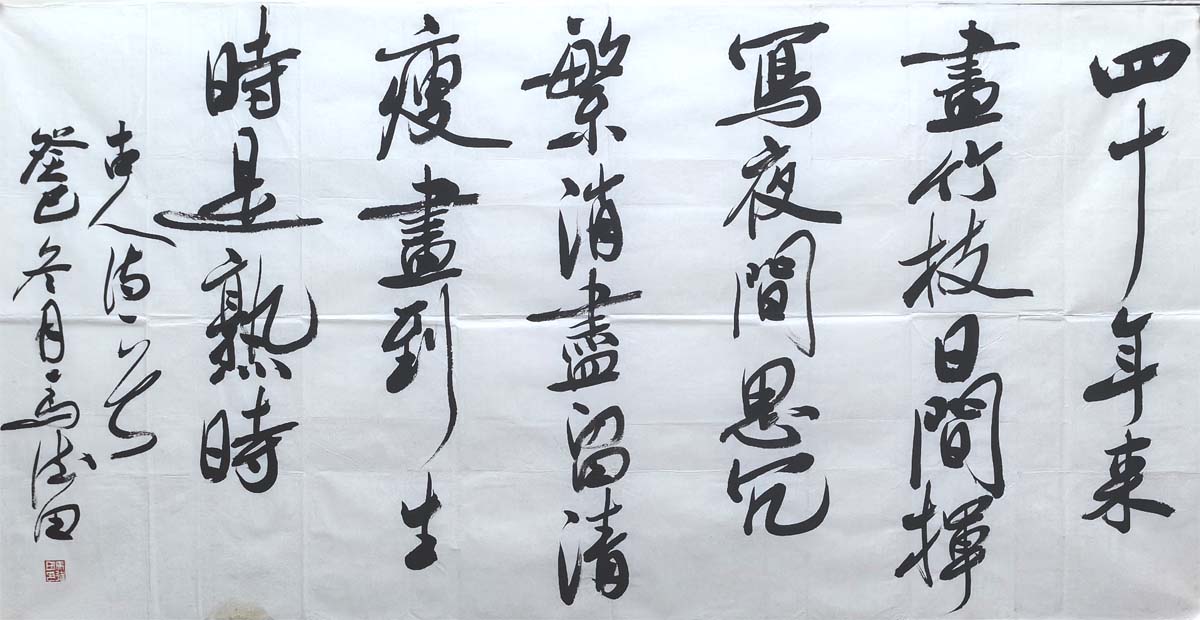 四十年来
畫竹枝日間揮
寫夜間思冗
繁消盡留清
瘦畫到生
時是熟時
古人詩一首
癸巳冬月馬德田